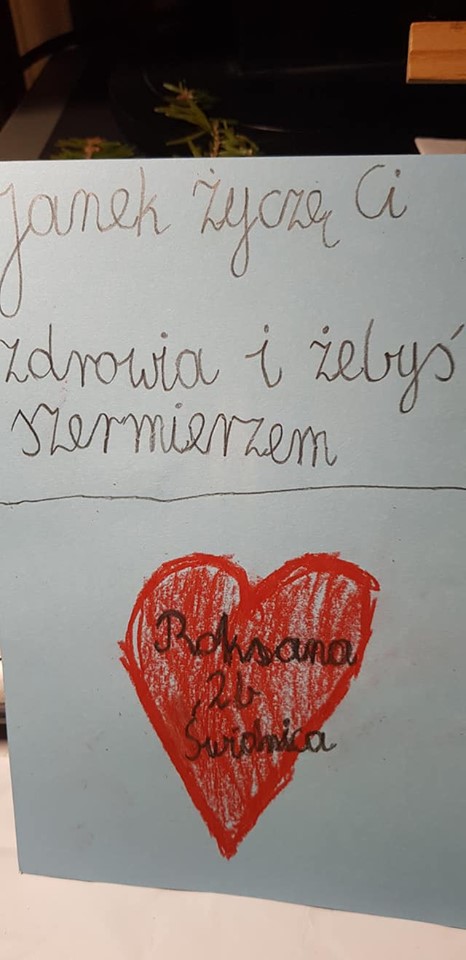 Janek życzę Ci
zdrowia i żebyś
szermierzem
Roksana
2b
Świdnica